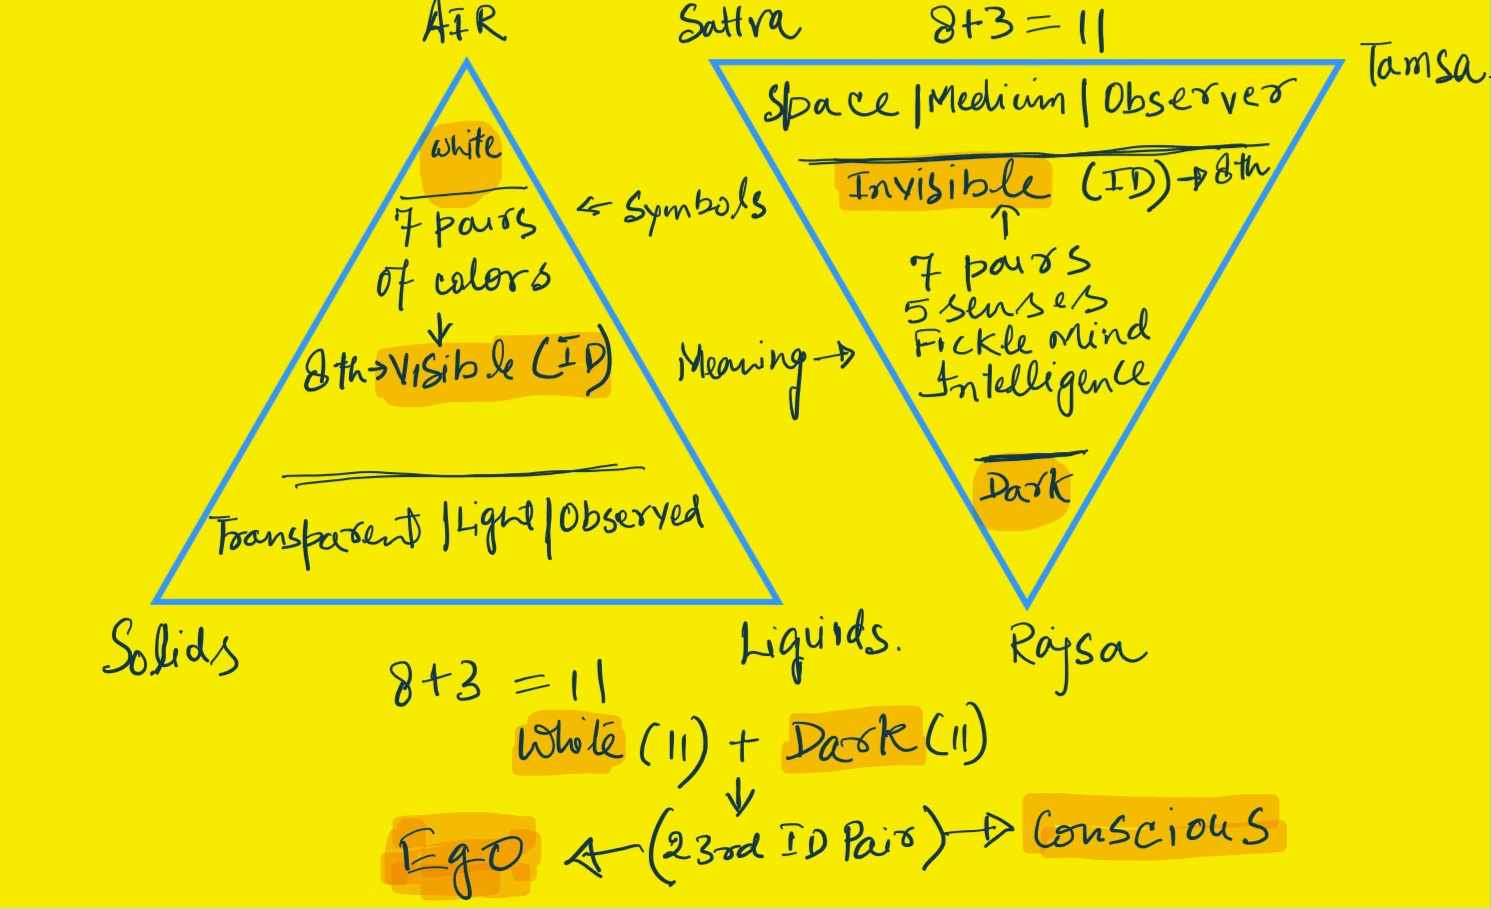 AIR
White
7 pairs
of colors
8th→Visible (ID)
Transparent | Light | Observed
Solids
Liquids.
8+3 = 11
← Symbols
Meaning →
Sattva 8+3 = 11
Tamsa.
Space | Medium | Observer
Invisible (ID)→8th
↑
7 pairs
5 senses
Fickle Mind
Intelligence
Dark
Rajsa
White (11) + Dark (11)
↓
Ego ← (23rd ID Pair) → Conscious